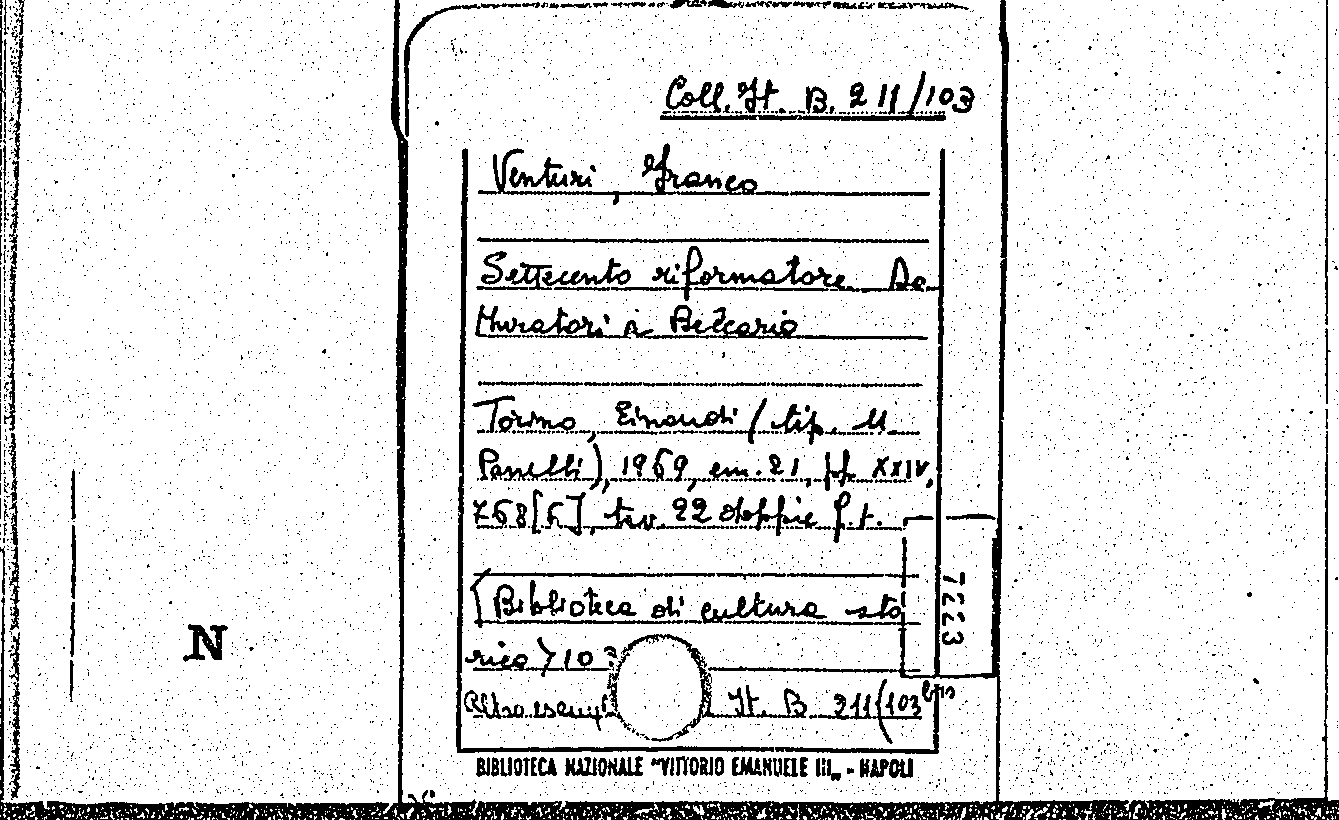 Coll. It. B. 211/103
Venturi, Franco
Settecento riformatore. Da
Muratori a Beccaria
Torino, Einaudi (tip. U.
Panelli), 1969, cm. 21, pp. XXIV,
768[6], tav. 22 doppie f.t.
(Biblioteca di cultura sto
rica) 103
7223
N
Altro esemp It. B 211(103 bis
BIBLIOTECA NAZIONALE "VITTORIO EMANUELE III„ - NAPOLI